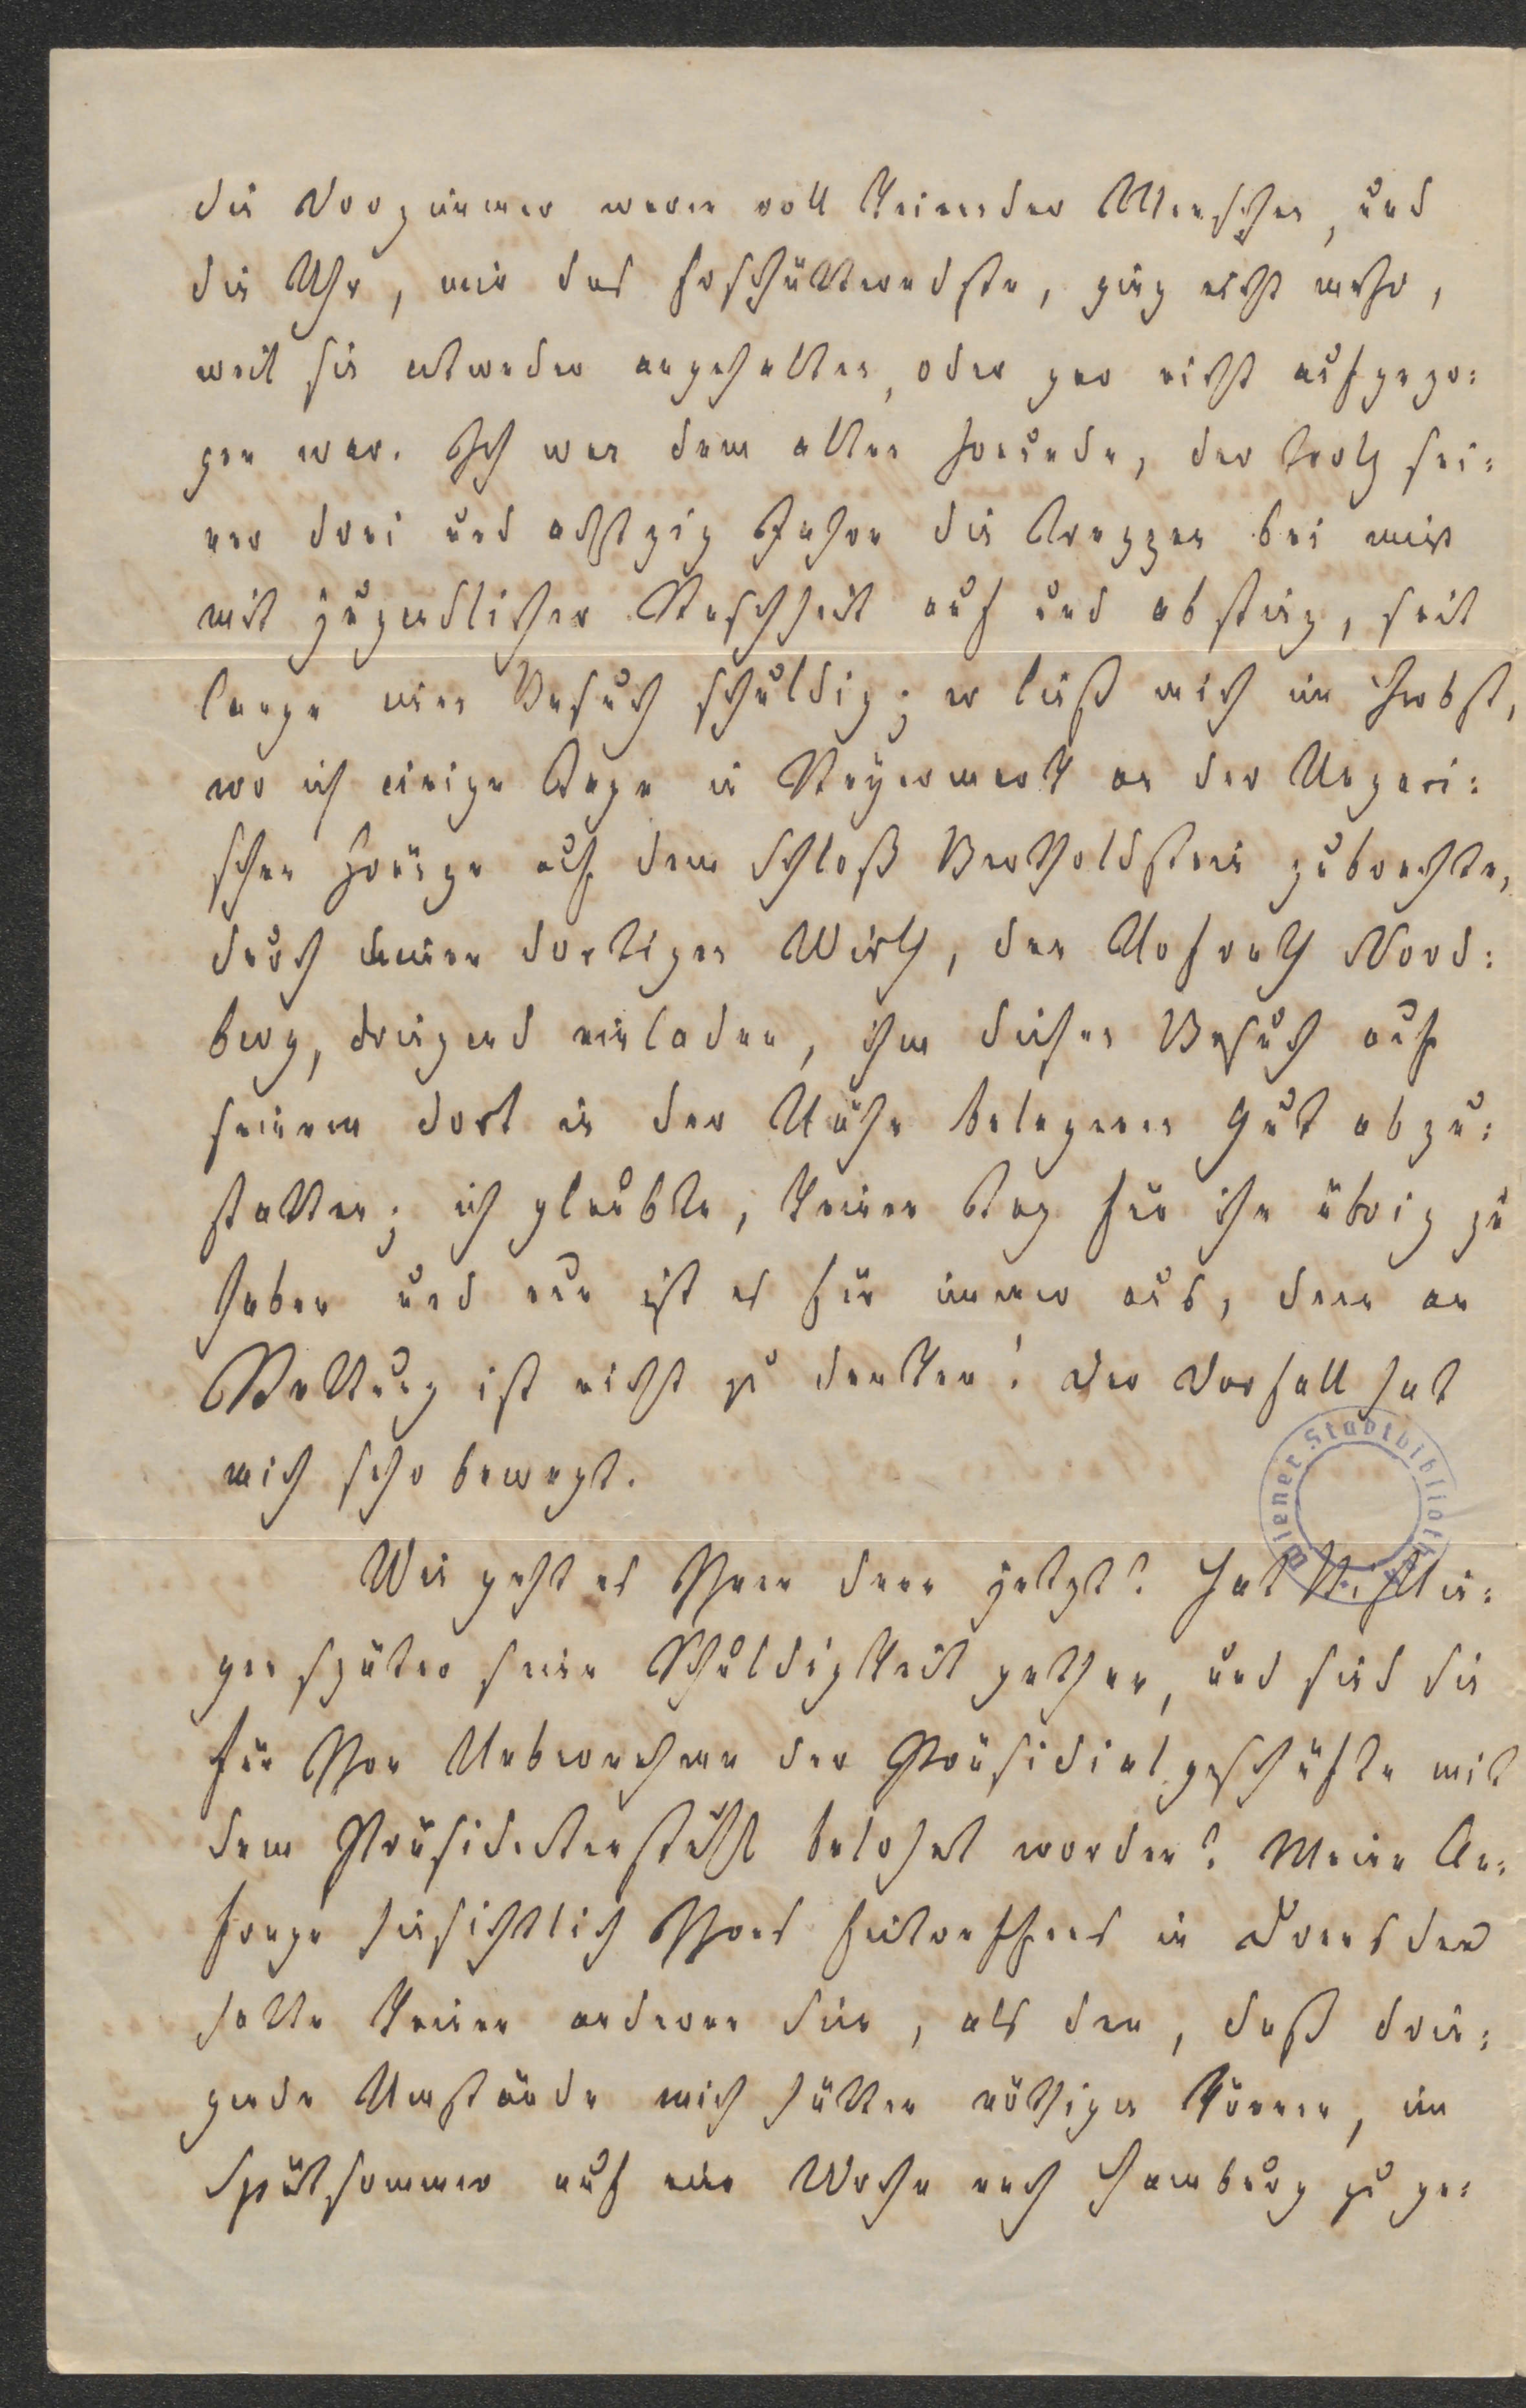 die Vorzimmer waren voll weinender Menschen, und
die Uhr, mir das Erschütterndste, ging nicht mehr,
weil sie entweder angehalten, oder gar nicht aufgezo:
gen war. Ich war dem alten Freunde, der trotz sei:
ner drei und achtzig Jahre die Treppen bei mir
mit jugendlicher Raschheit auf und abstieg, seit
lange einen Besuch schuldig; er ließ mich im Herbst,
wo ich einige Tage in Steyermark an der Ungari:
schen Gränze auf dem Schloß Bertholdstein zubrachte,
durch meinen dortigen Wirth, den Hofrath Nord:
berg, dringend einladen, ihm diesen Besuch auf
seinem dort in der Nähe belegenen Gut abzu:
statten; ich glaubte, keinen Tag für ihn übrig zu
haben und nun ist es für immer aus, denn an
Rettung ist nicht zu denken! Der Vorfall hat
mich sehr bewegt.
Wie geht es Ihnen denn jetzt? Hat
gen später seine Schuldigkeit gethan, und sind Sie
für Ihre Uebernahme der Präsidialgeschäfte mit
dem Präsidentenstuhl belohnt worden? Meine An:
frage hinsichtlich Ihres Eintreffens in Dresden
hatte keinen anderen Sinn, als den, daß drin:
gende Umstände mich hätten nöthigen können, im
Spätsommer auf eine Woche nach Hamburg zu ge:
Wiener Stadtbibliothek